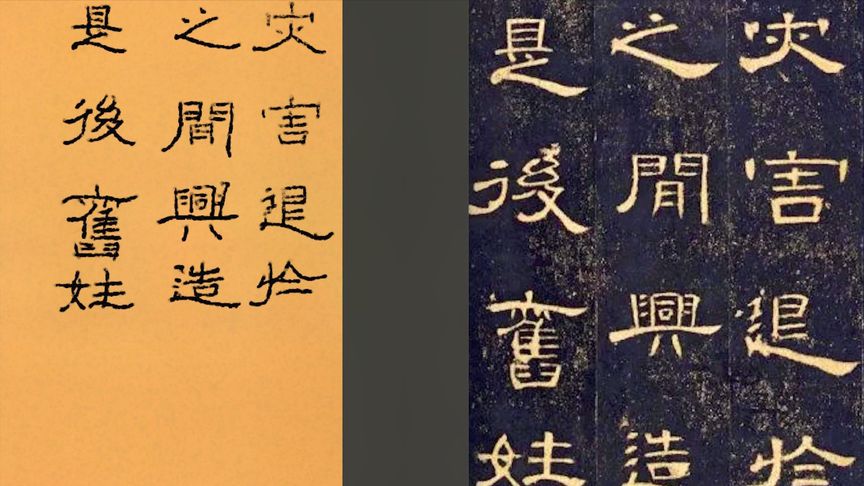 灾害退於
之間興造
是後舊姓
灾害退於
之間興造
是後舊姓